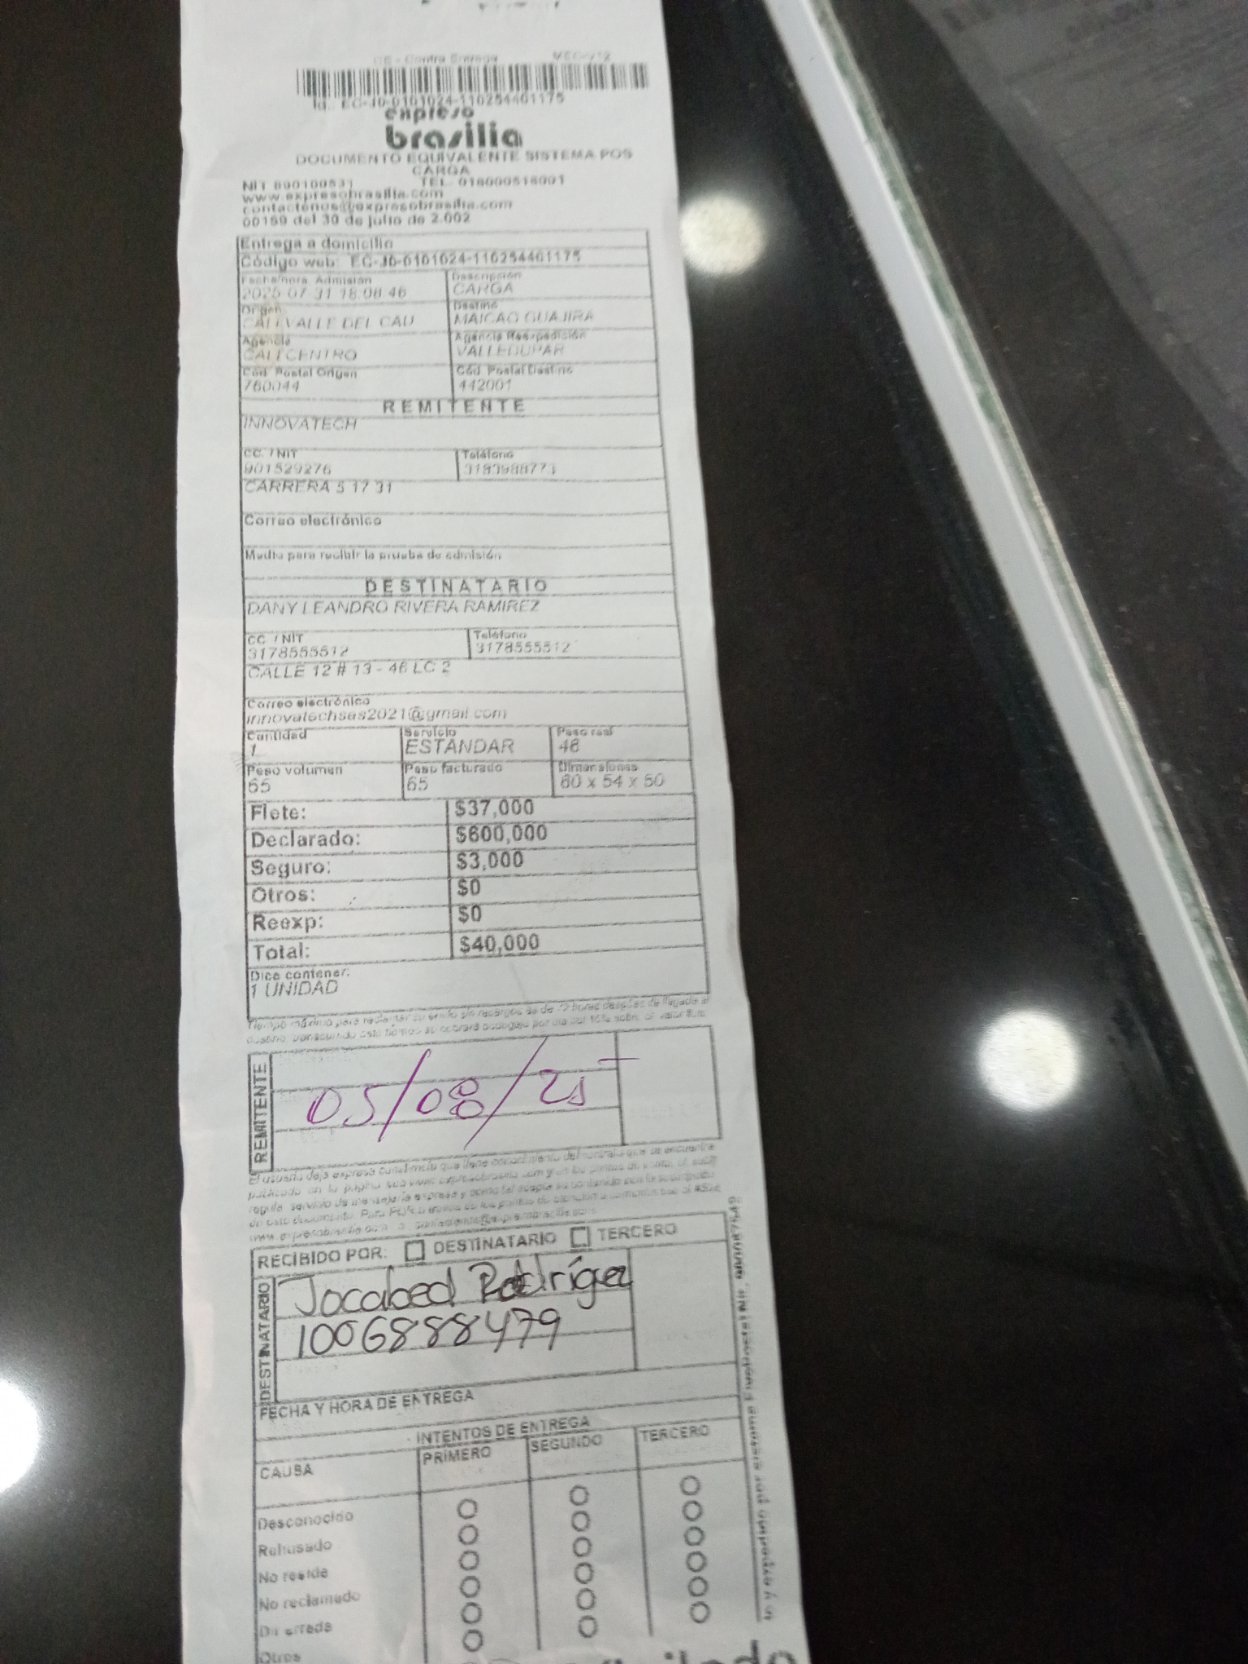 CE - Contra Entrega MEC-912
Id. EC-J0-0101024-110254401175
expreso
brasilia
DOCUMENTO EQUIVALENTE SISTEMA POS
CARGA
NIT 890100531 TEL. 018000518001
www.expresobrasilia.com
contactenos@expresobrasilia.com
00199 del 30 de julio de 2.002
Entrega a domicilio
Código web: EC-J0-0101024-110254401175
Fecha/hora Admisión Descripción
2025-07-31 18:08:46 CARGA
Origen Destino
CALI VALLE DEL CAU MAICAO GUAJIRA
Agencia Agencia Reexpedición
CALI CENTRO VALLEDUPAR
Cód. Postal Origen Cód. Postal Destino
760044 442001
REMITENTE
INNOVATECH
CC. / NIT Teléfono
901529276 3183988773
CARRERA 5 17 31
Correo electrónico
Medio para recibir la prueba de admisión
DESTINATARIO
DANY LEANDRO RIVERA RAMIREZ
CC. / NIT Teléfono
3178555512 3178555512
CALLE 12 # 13 - 46 LC 2
Correo electrónico
innovatechsas2021@gmail.com
Cantidad Servicio Peso real
1 ESTANDAR 48
Peso volumen Peso facturado Dimensiones
65 65 60 x 54 x 50
Flete: $37,000
Declarado: $600,000
Seguro: $3,000
Otros: $0
Reexp: $0
Total: $40,000
Dice contener:
1 UNIDAD
REMITENTE
05/08/25
RECIBIDO POR: DESTINATARIO TERCERO
DESTINATARIO
Jocabed Rodríguez
1006888479
FECHA Y HORA DE ENTREGA
INTENTOS DE ENTREGA
CAUSA PRIMERO SEGUNDO TERCERO
Desconocido
Rehusado
No reside
No reclamado
Dir errada
Otros